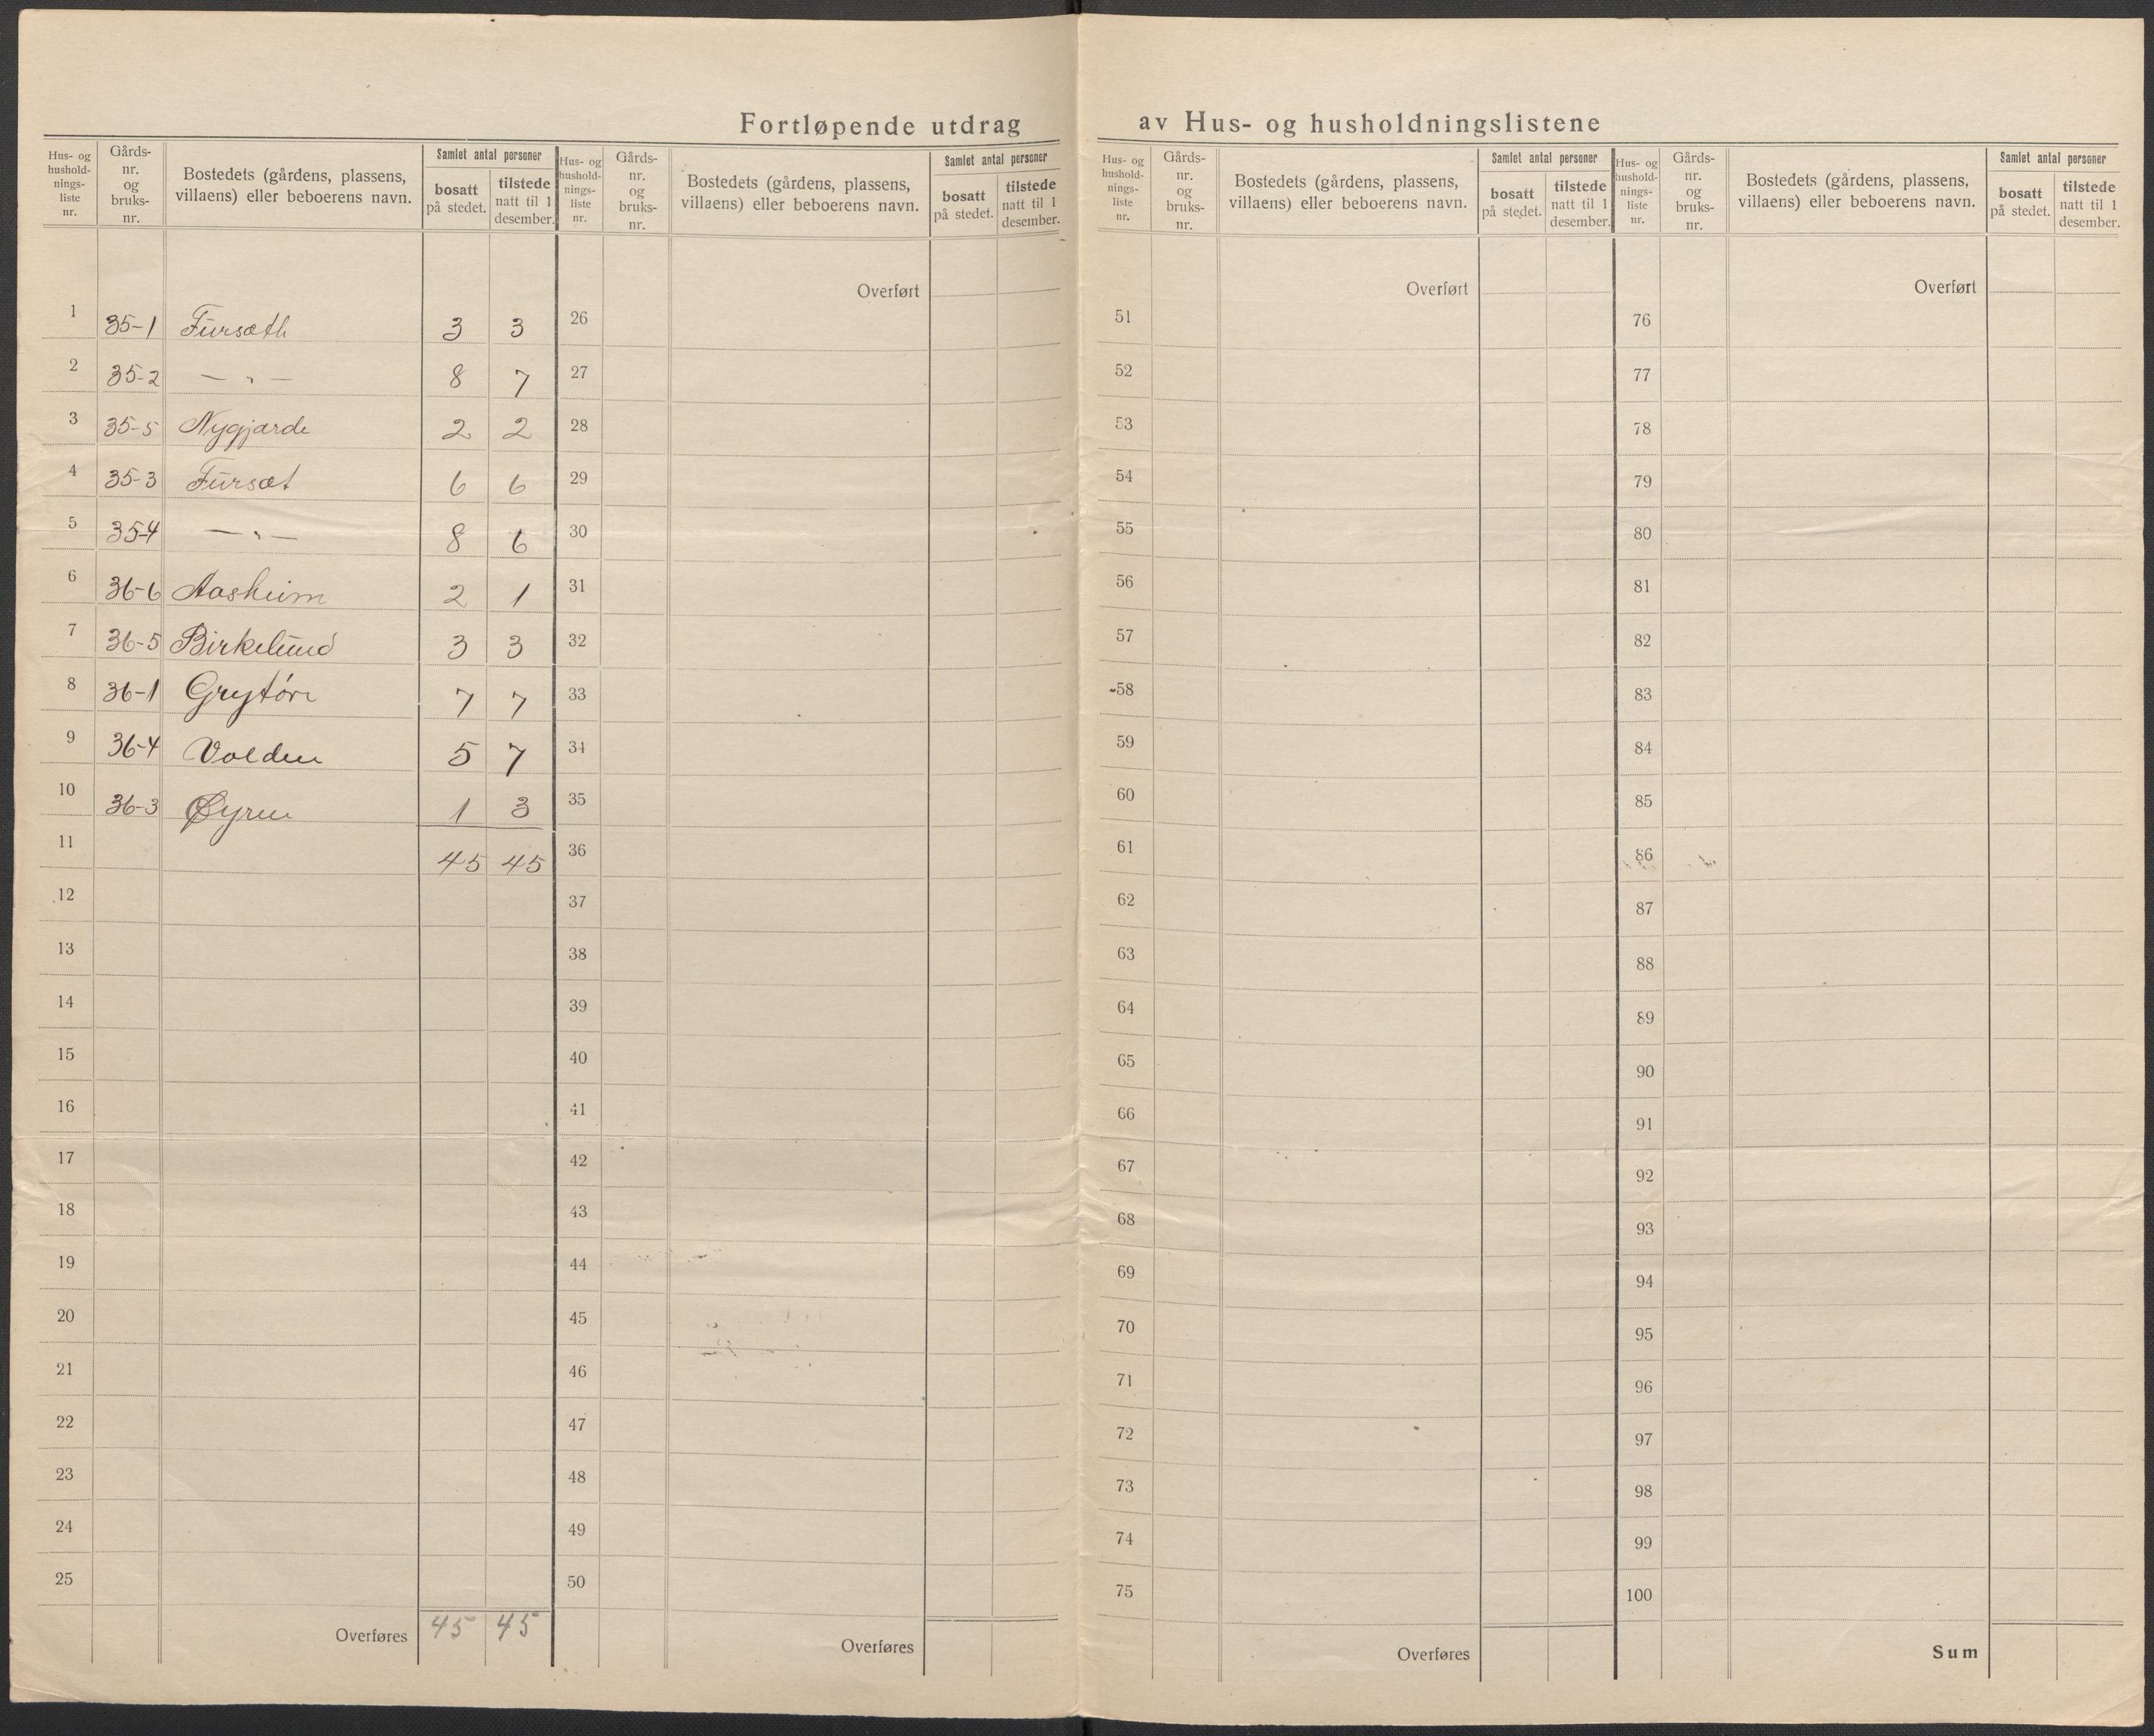 Fortløpende utdrag av Hus- og husholdningslistene
Hus- og hushold- nings- liste nr. | Gårds- nr. og bruks- nr. | Bostedets (gårdens, plassens, villaens) eller beboerens navn. | Samlet antal personer | bosatt på stedet. | tilstede natt til 1 desember.
Hus- og hushold- nings- liste nr. | Gårds- nr. og bruks- nr. | Bostedets (gårdens, plassens, villaens) eller beboerens navn. | Samlet antal personer | bosatt på stedet. | tilstede natt til 1 desember.
Hus- og hushold- nings- liste nr. | Gårds- nr. og bruks- nr. | Bostedets (gårdens, plassens, villaens) eller beboerens navn. | Samlet antal personer | bosatt på stedet. | tilstede natt til 1 desember.
Hus- og hushold- nings- liste nr. | Gårds- nr. og bruks- nr. | Bostedets (gårdens, plassens, villaens) eller beboerens navn. | Samlet antal personer | bosatt på stedet. | tilstede natt til 1 desember.
1 35-1 Fursæth 3 3
2 35-2 — „ — 8 7
3 35-5 Nygjærde 2 2
4 35-3 Fursæt 6 6
5 35-4 — „ — 8 6
6 36-6 Aasheim 2 1
7 36-5 Birkelund 3 3
8 36-1 Grytøre 7 7
9 36-4 Volden 5 7
10 36-3 Øyren 1 3
11 45 45
12
13
14
15
16
17
18
19
20
21
22
23
24
25
Overføres 45 45
Overført
26
27
28
29
30
31
32
33
34
35
36
37
38
39
40
41
42
43
44
45
46
47
48
49
50
Overføres
Overført
51
52
53
54
55
56
57
58
59
60
61
62
63
64
65
66
67
68
69
70
71
72
73
74
75
Overføres
Overført
76
77
78
79
80
81
82
83
84
85
86
87
88
89
90
91
92
93
94
95
96
97
98
99
100
Sum